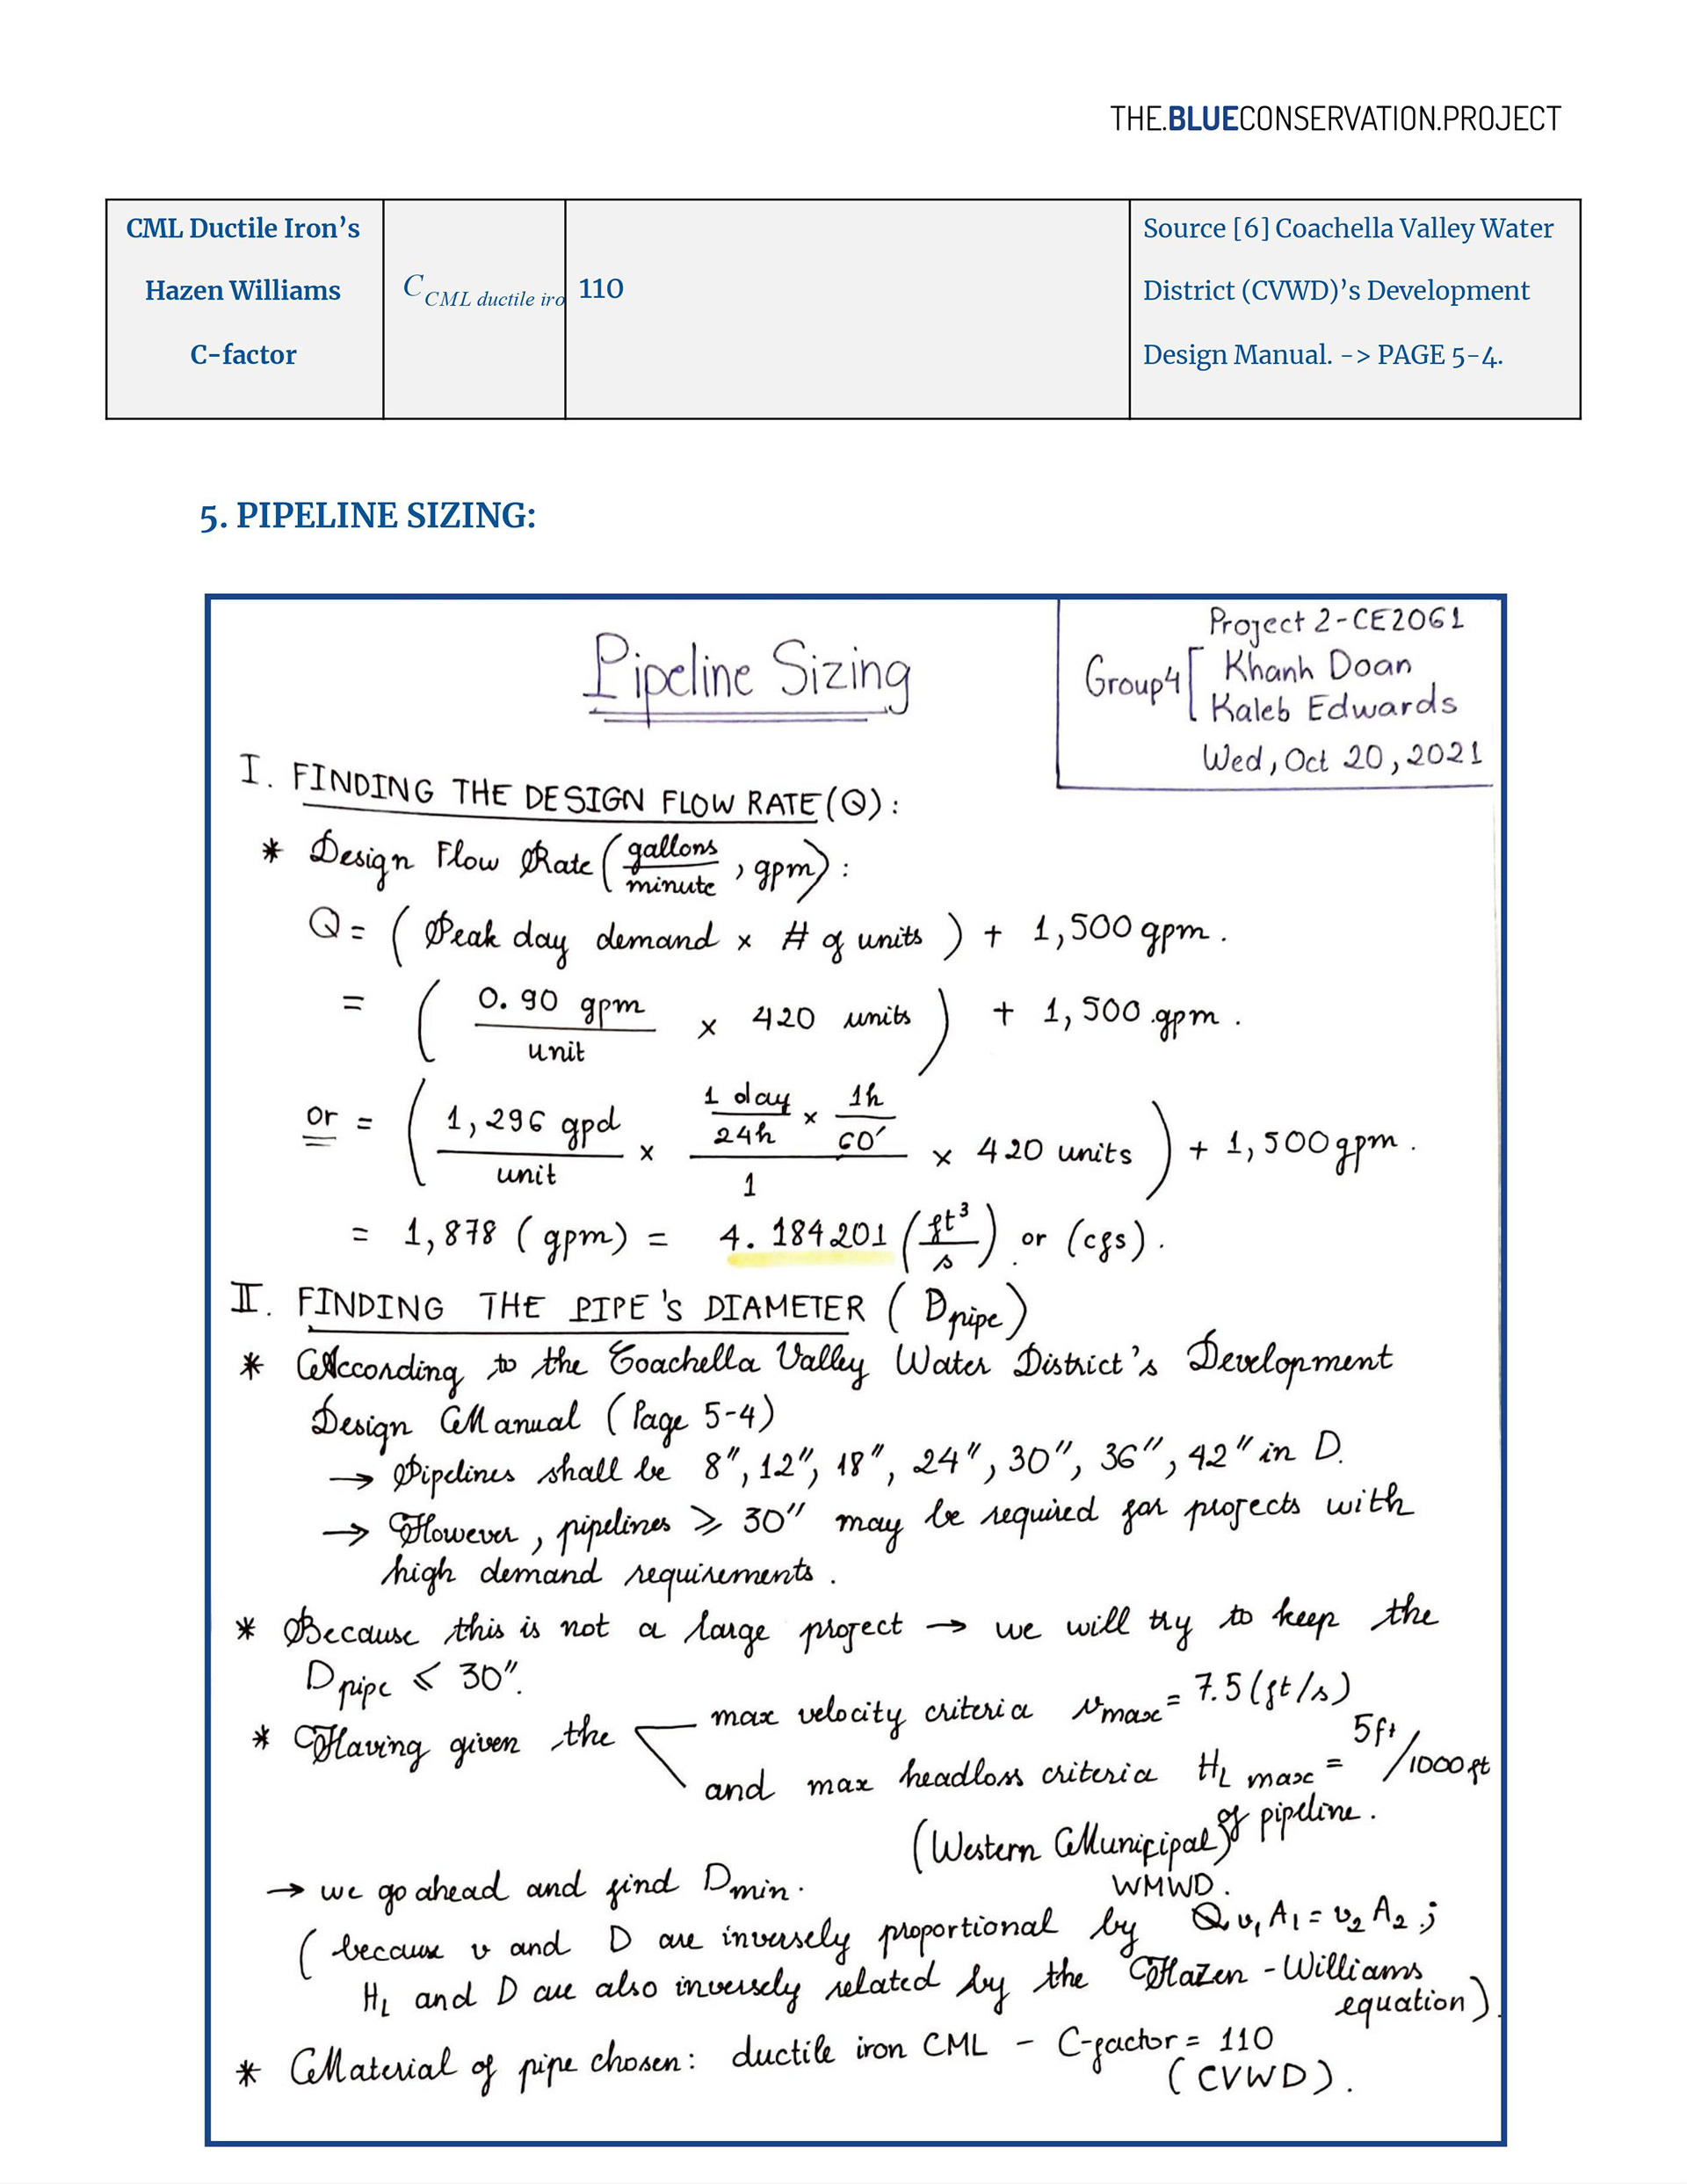 THE.BLUECONSERVATION.PROJECT
CML Ductile Iron's
Hazen Williams
C-factor
C CML ductile iro
110
Source [6] Coachella Valley Water
District (CVWD)'s Development
Design Manual. -> PAGE 5-4.
5. PIPELINE SIZING:
Pipeline Sizing
Project 2-CE2061
Group4 [ Khanh Doan
Kaleb Edwards
Wed, Oct 20, 2021
I. FINDING THE DESIGN FLOW RATE (Q):
* Design Flow Rate (gallons/minute, gpm):
Q = (Peak day demand × # of units) + 1,500 gpm.
= (0.90 gpm/unit × 420 units) + 1,500 gpm.
or = (1,296 gpd/unit × (1 day/24h × 1h/60')/1 × 420 units) + 1,500 gpm.
= 1,878 (gpm) = 4.184201 (ft³/s) or (cfs).
II. FINDING THE PIPE'S DIAMETER (D pipe)
* According to the Coachella Valley Water District's Development
Design Manual (Page 5-4)
→ Pipelines shall be 8", 12", 18", 24", 30", 36", 42" in D.
→ However, pipelines ⩾ 30" may be required for projects with
high demand requirements.
* Because this is not a large project → we will try to keep the
D pipe ⩽ 30".
* Having given the
max velocity criteria v max = 7.5 (ft/s)
and max headloss criteria HL max = 5ft/1000ft
of pipeline.
(Western Municipal)
WMWD.
→ we go ahead and find D min.
(because v and D are inversely proportional by Q v₁ A₁ = v₂ A₂ ;
HL and D are also inversely related by the Hazen-Williams
equation).
* Material of pipe chosen: ductile iron CML - C-factor = 110
(CVWD).